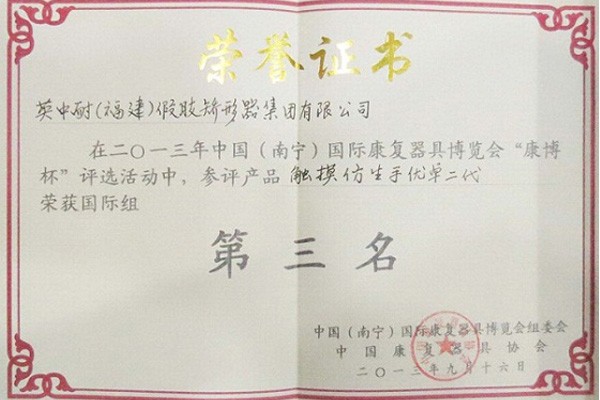 荣誉证书
英中耐(福建)假肢矫形器集团有限公司
在二〇一三年中国(南宁)国际康复器具博览会“康博
杯”评选活动中,参评产品 触摸仿生手优卓二代
荣获国际组
第三名
中国(南宁)国际康复器具博览会组委会
中国康复器具协会
二〇一三年九月十六日